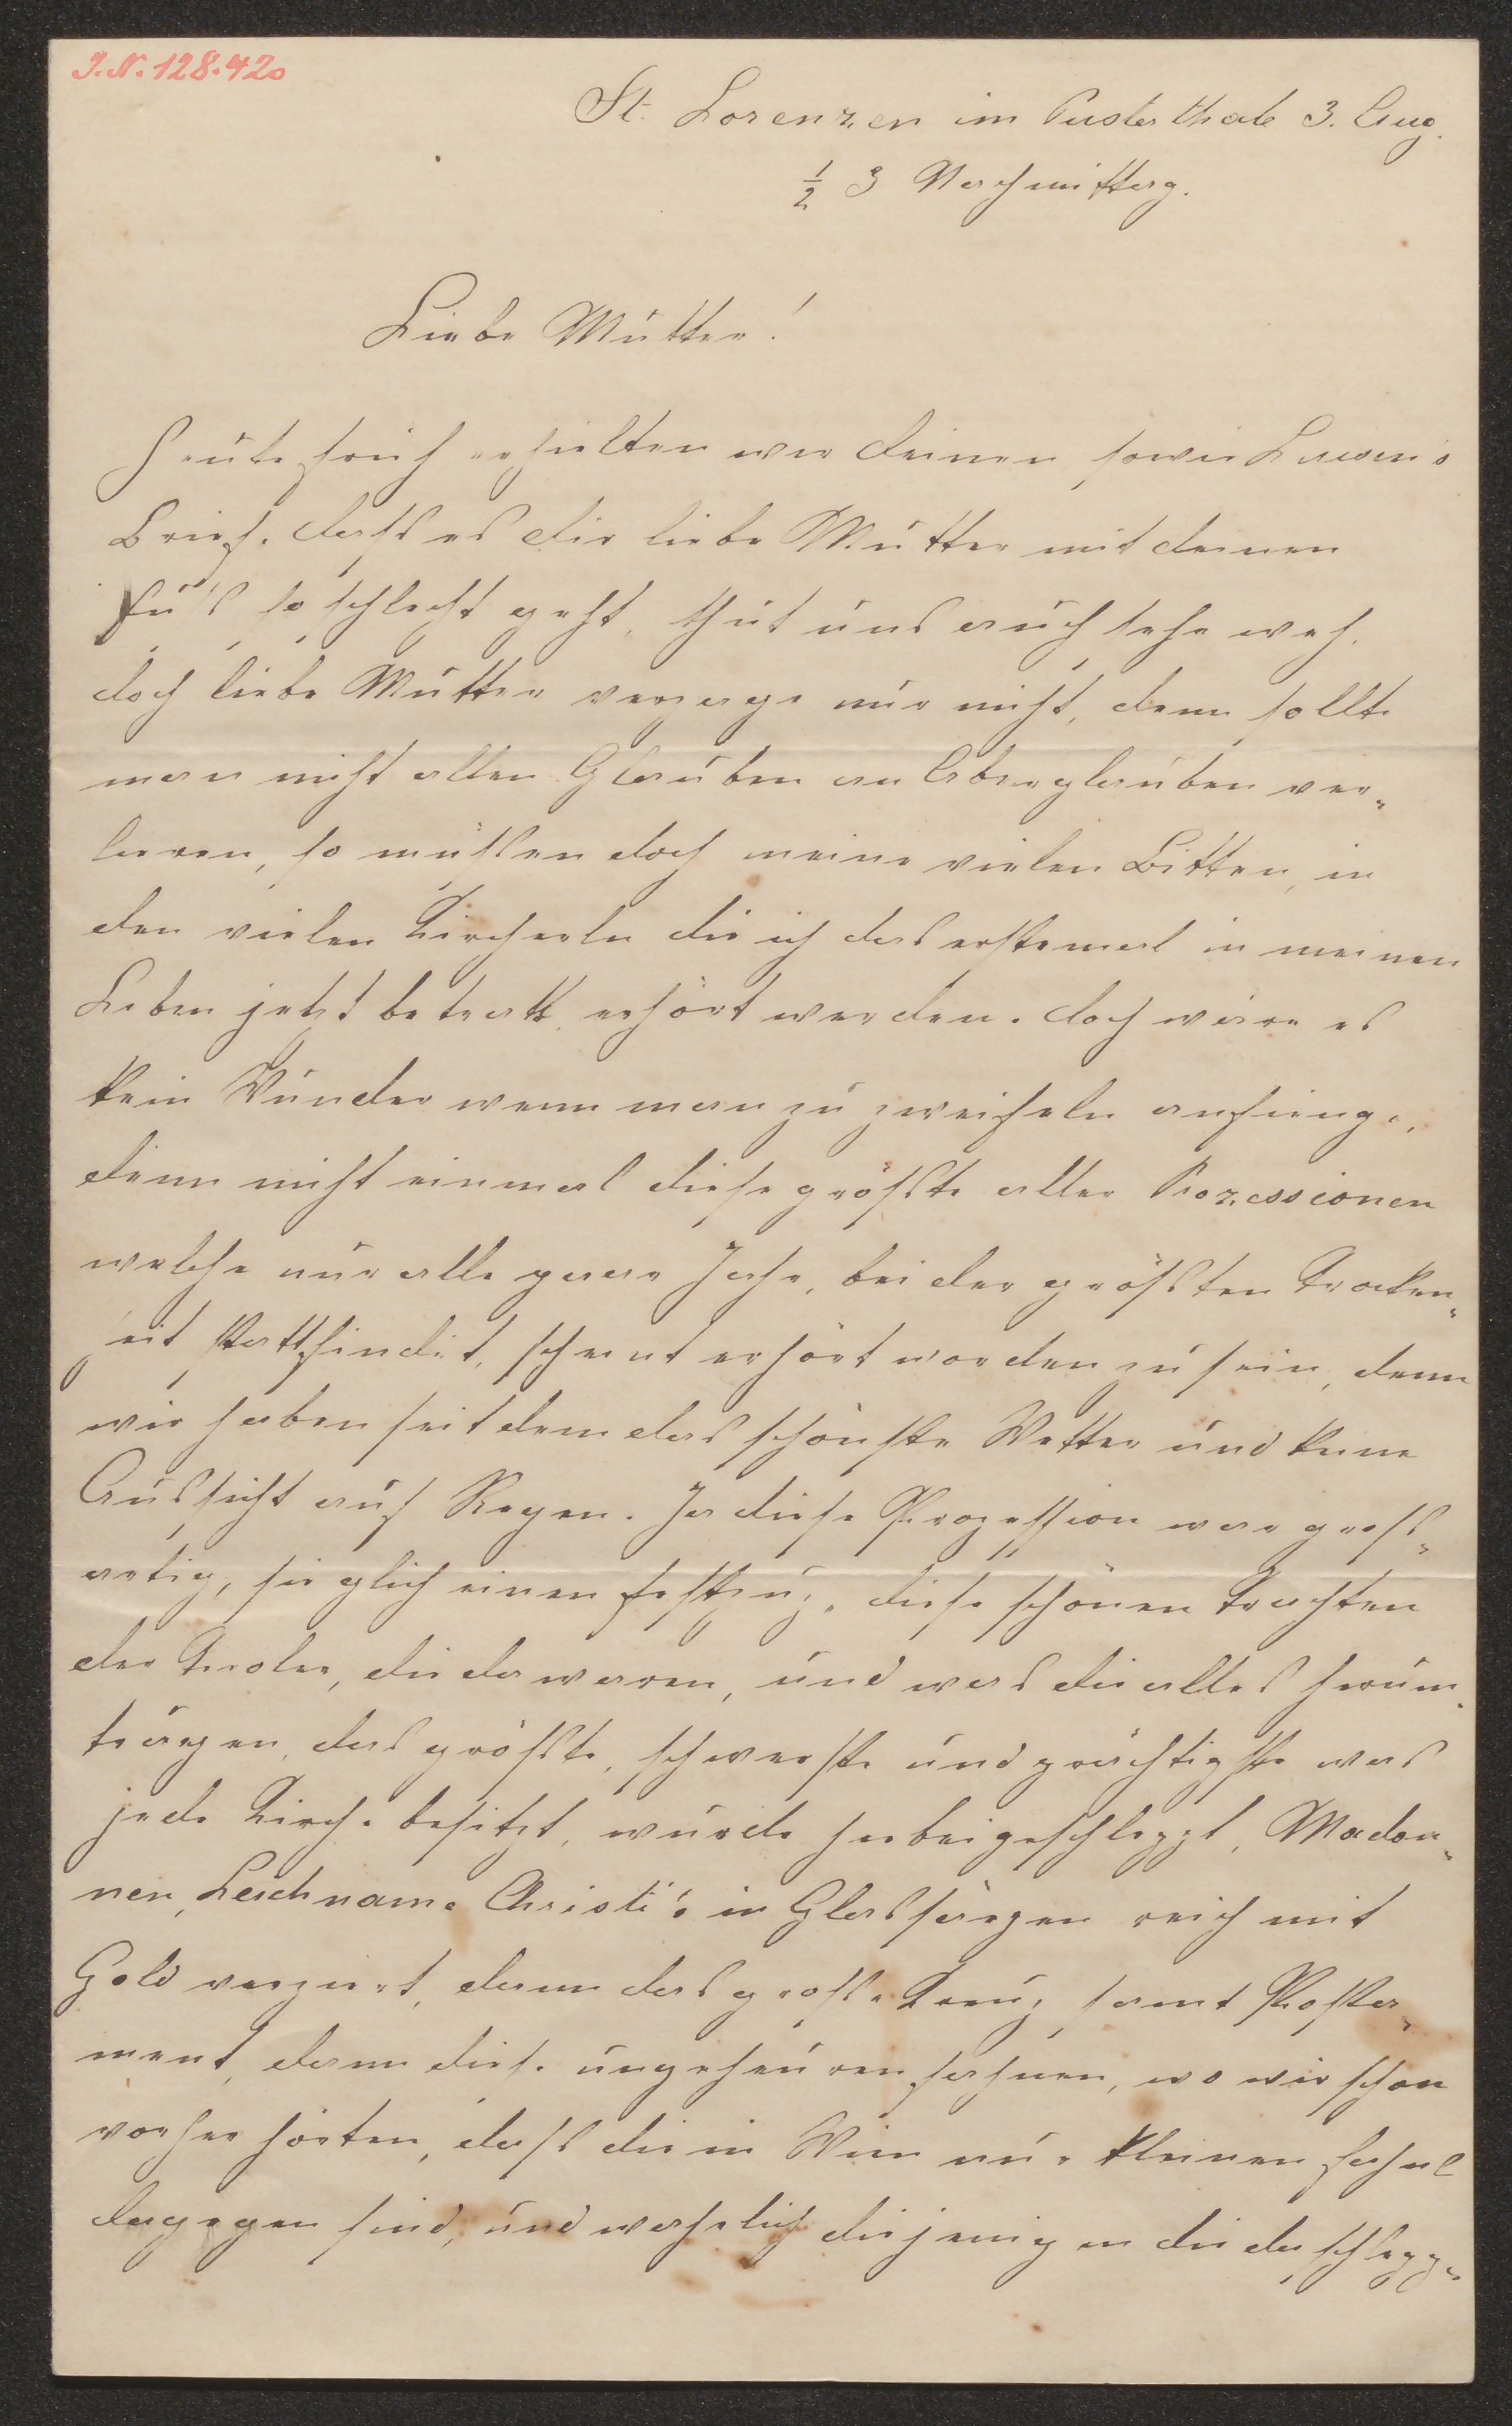 J. N. 128.420
St. Lorenzen im Pusterthale 3. Aug.
½ 3 Nachmittag.
Liebe Mutter!
Heute früh erhielten wir deinen, sowie
Brief. dass es dir liebe Mutter mit deinen
Fuß so schlecht geht, thut uns auch sehr weh,
doch liebe Mutter verzage nur nicht, denn sollte
man nicht allen Glauben an Aberglauben ver„
lieren, so müßten doch meine vielen Bitten, in
den vielen Kircherln die ich das erstemal in meinen
Leben jetzt betratt erhört werden. doch wäre es
kein Wunder wenn man zu zweifeln anfienge,
denn nicht einmal diese größte aller Prozessionen
welche nur alle paar Jahr, bei der größten Trocken„
zeit stattfindet, scheint erhört worden zu sein, denn
wir haben seitdem das schönste Wetter und keine
Aussicht auf Regen. Ja diese Prozession war gross„
artig, sie glich einen Festzug, diese schönen Trachten
der Tiroler, die da waren, und was die alles herum„
trugen, das größte, schwerste und prächtigste was
jede Kirche besitzt, wurde herbeigeschleppt, Madon„
nen, Leichname Christi's in Glassärgen reich mit
Gold verziert, dann das große Kreuz samt Posta„
ment, dann diese ungeheuren Fahnen, wo wir schon
vorher hörten, dass die in Wien nur kleinen Fahnl
dagegen sind, und wahrlich diejenigen die da schlepp„